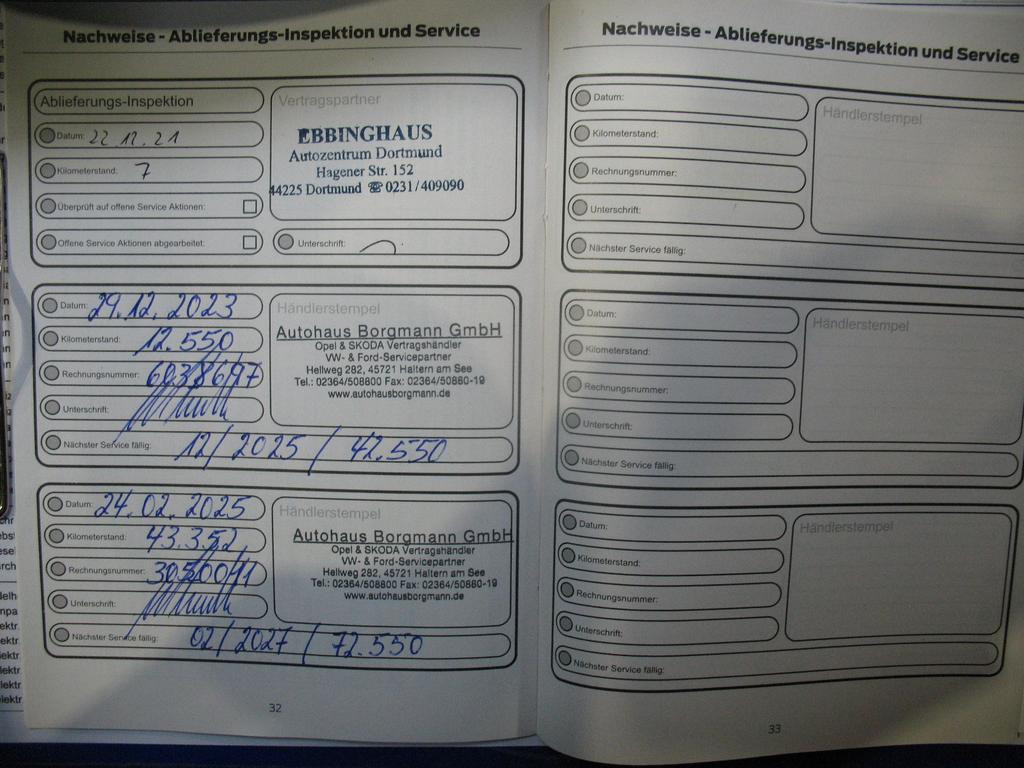 Nachweise - Ablieferungs-Inspektion und Service
Ablieferungs-Inspektion
Datum: 22.12.21
Kilometerstand: 7
Überprüft auf offene Service Aktionen:
Offene Service Aktionen abgearbeitet:
Vertragspartner
EBBINGHAUS
Autozentrum Dortmund
Hagener Str. 152
44225 Dortmund ☎ 0231/409090
Unterschrift:
Datum: 29.12.2023
Kilometerstand: 12.550
Rechnungsnummer:
Unterschrift:
Nächster Service fällig: 12/2025 / 42.550
Händlerstempel
Autohaus Borgmann GmbH
Opel & SKODA Vertragshändler
VW- & Ford-Servicepartner
Hellweg 282, 45721 Haltern am See
Tel.: 02364/508800 Fax: 02364/50880-19
www.autohausborgmann.de
Datum: 24.02.2025
Kilometerstand: 43.352
Rechnungsnummer:
Unterschrift:
Nächster Service fällig: 02/2027 / 72.550
Händlerstempel
Autohaus Borgmann GmbH
Opel & SKODA Vertragshändler
VW- & Ford-Servicepartner
Hellweg 282, 45721 Haltern am See
Tel.: 02364/508800 Fax: 02364/50880-19
www.autohausborgmann.de
32
Nachweise - Ablieferungs-Inspektion und Service
Datum:
Kilometerstand:
Rechnungsnummer:
Unterschrift:
Nächster Service fällig:
Händlerstempel
Datum:
Kilometerstand:
Rechnungsnummer:
Unterschrift:
Nächster Service fällig:
Händlerstempel
Datum:
Kilometerstand:
Rechnungsnummer:
Unterschrift:
Nächster Service fällig:
Händlerstempel
33